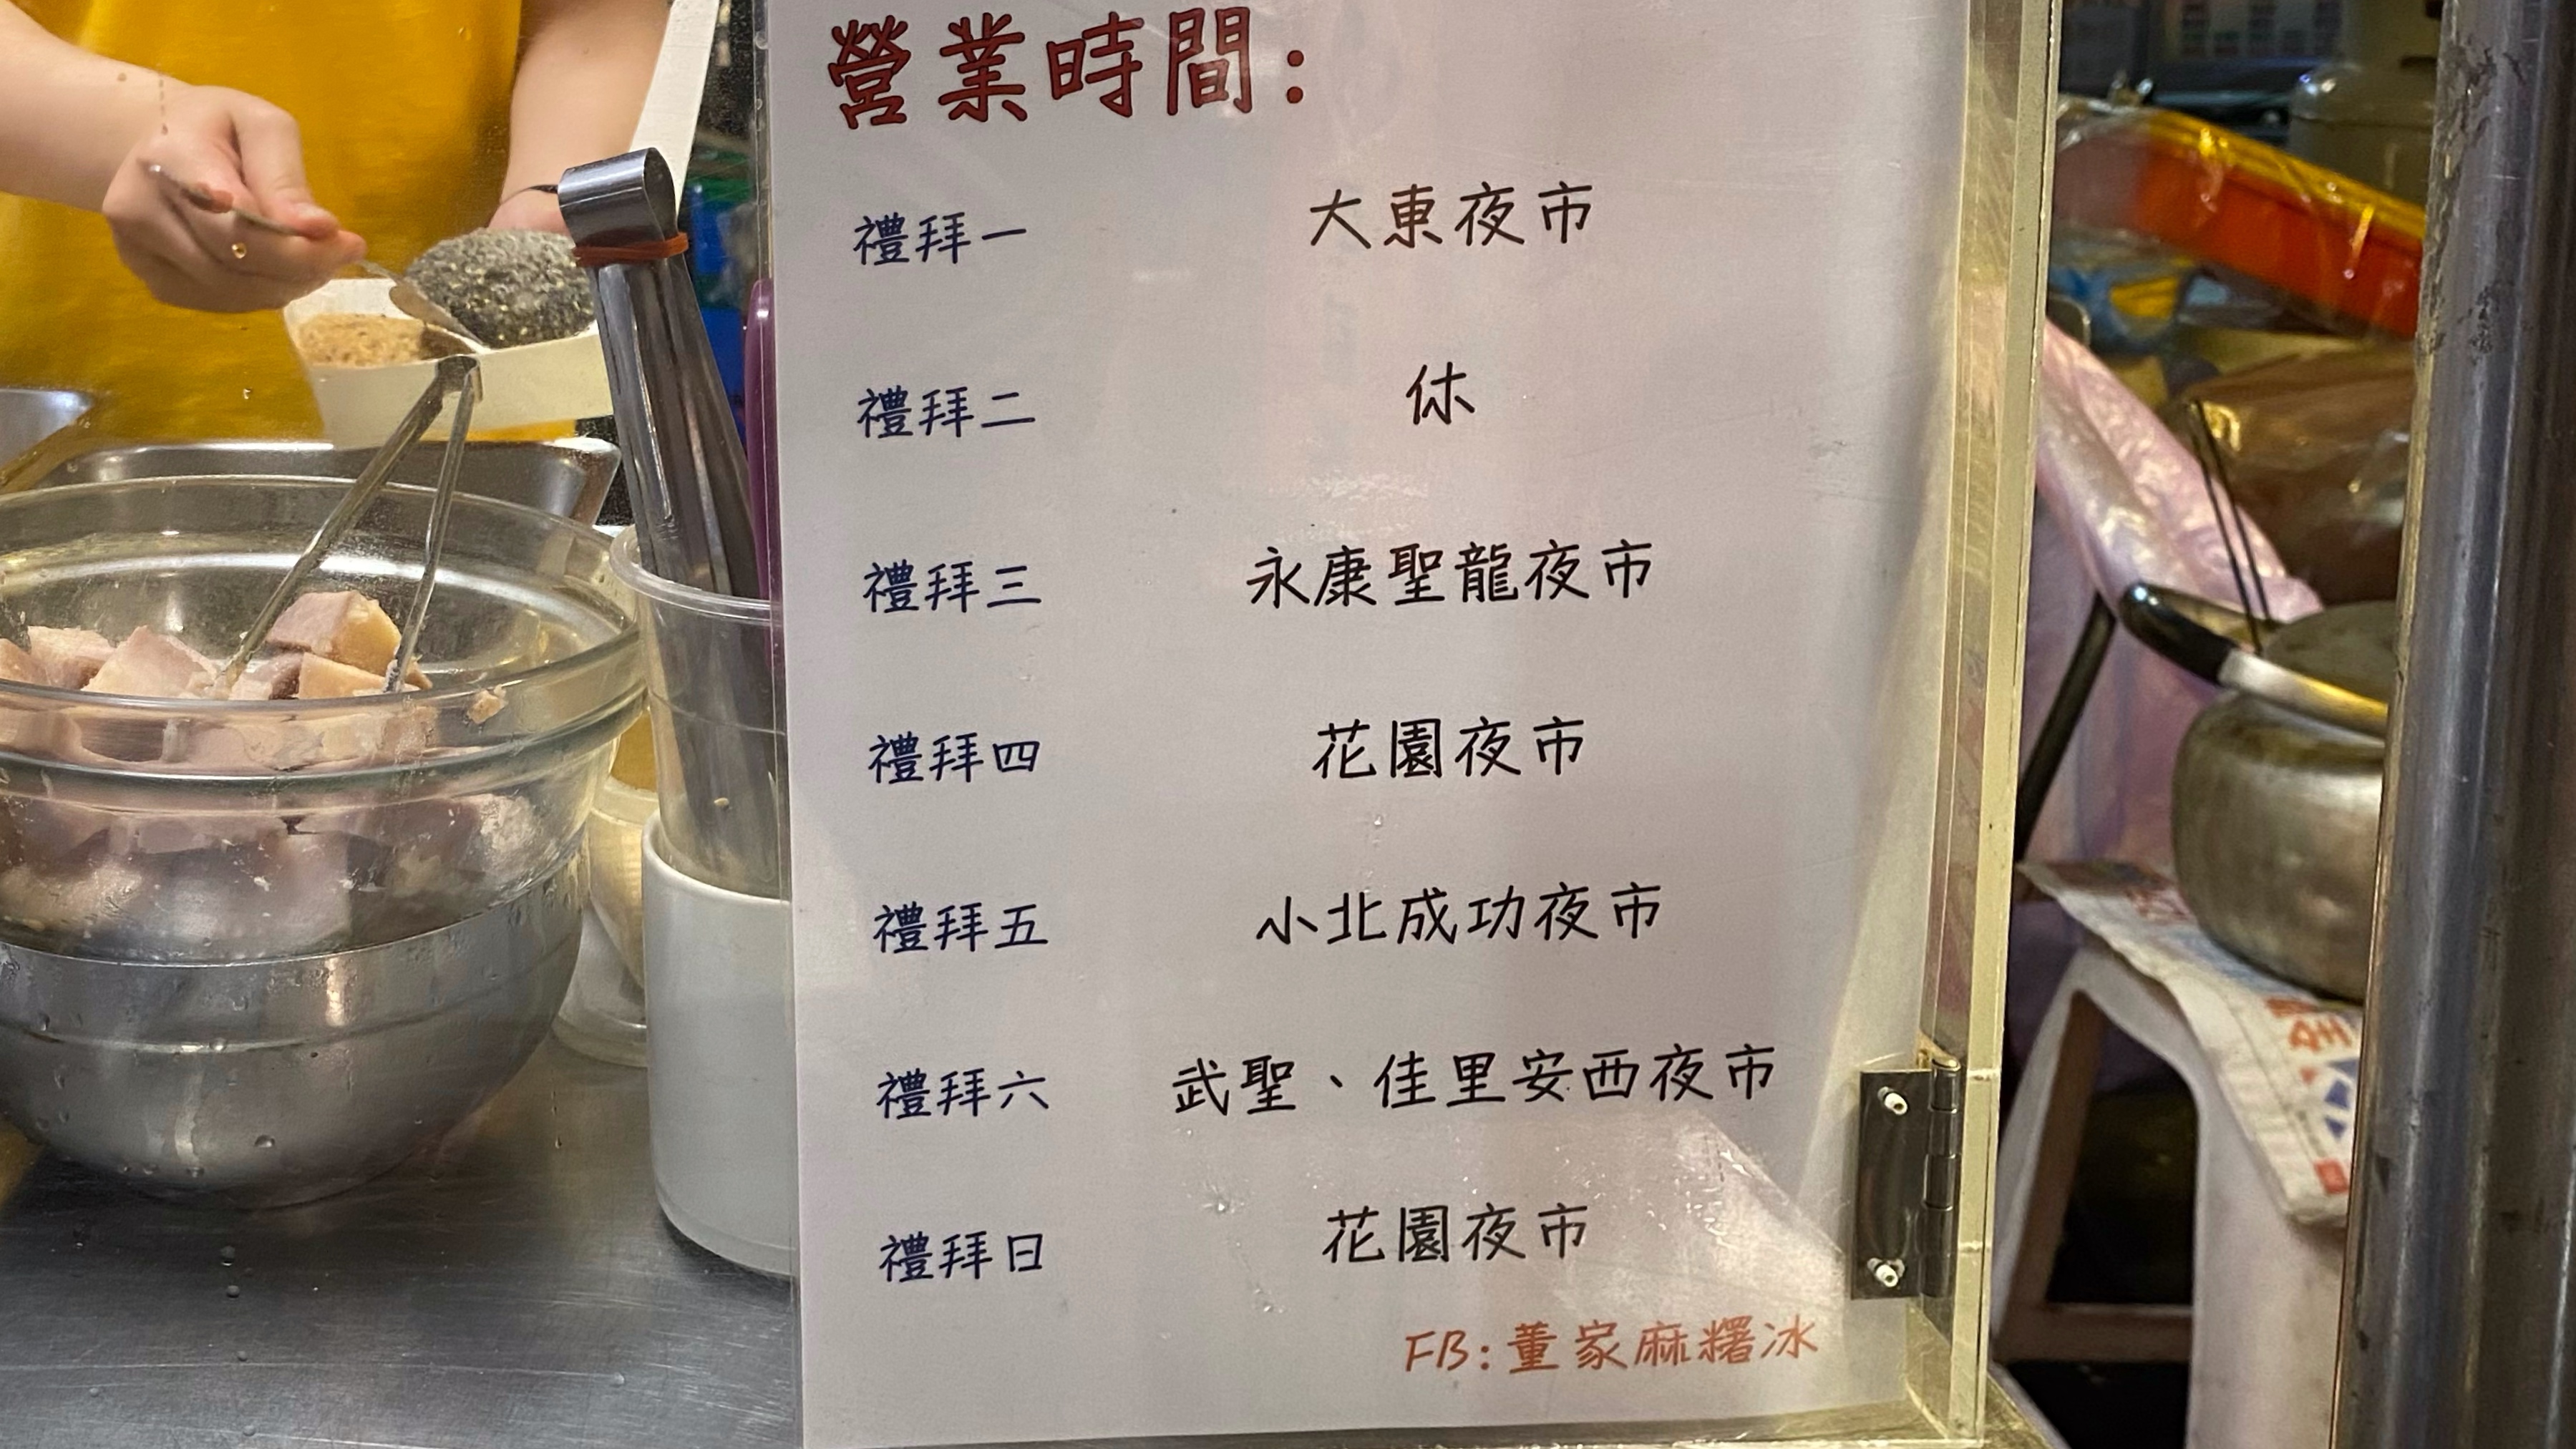 營業時間:
禮拜一 大東夜市
禮拜二 休
禮拜三 永康聖龍夜市
禮拜四 花園夜市
禮拜五 小北成功夜市
禮拜六 武聖、佳里安西夜市
禮拜日 花園夜市
FB:董家麻糬冰